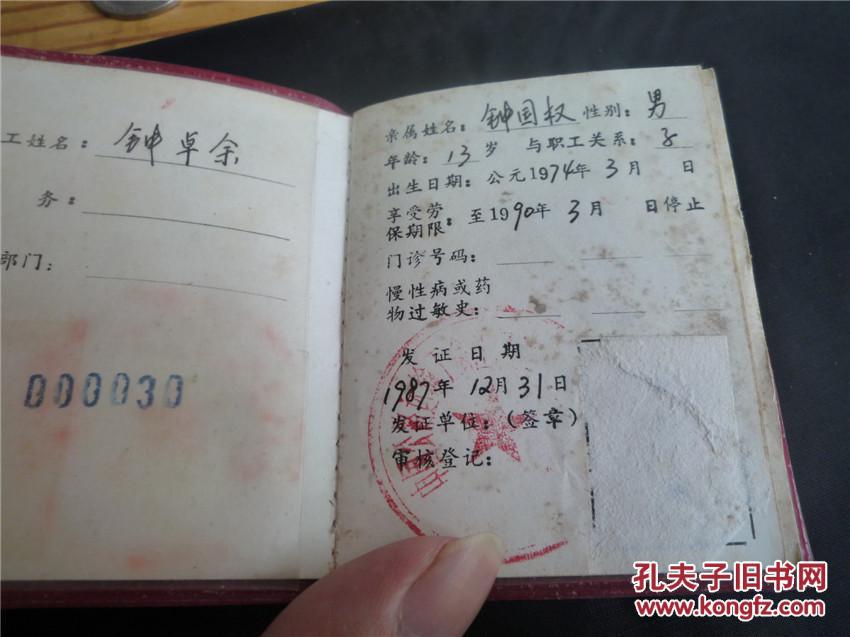 工姓名：钟卓余
务：
部门：
000030
亲属姓名：钟国权 性别：男
年龄：13岁 与职工关系：子
出生日期：公元1974年3月 日
享受劳
保期限：至1990年3月 日停止
门诊号码：
慢性病或药
物过敏史：
发证日期
1987年12月31日
发证单位：（签章）
审核登记：
孔夫子旧书网
www.kongfz.com